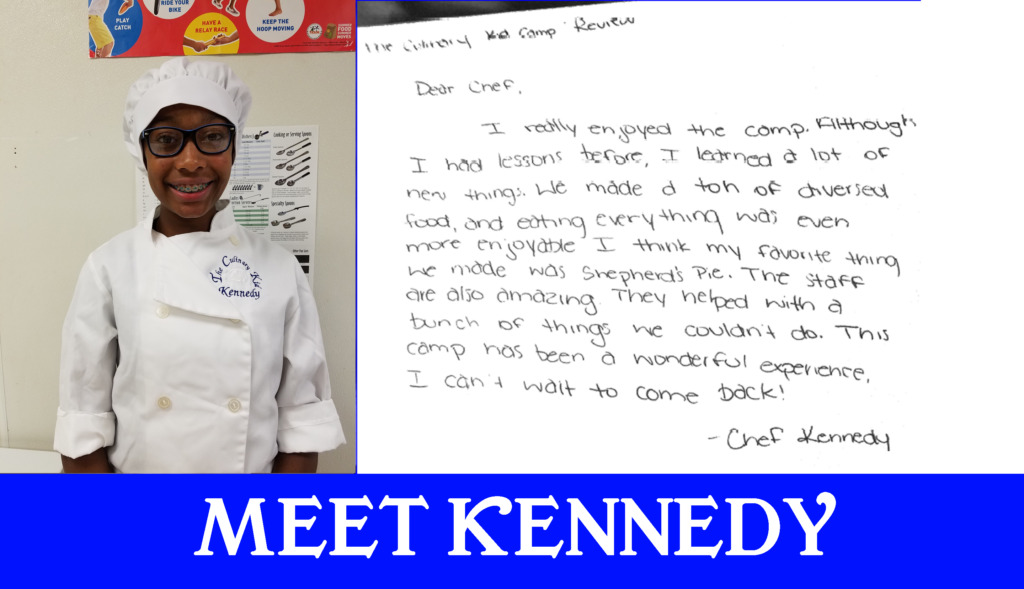 PLAY
CATCH
RIDE YOUR
BIKE
HAVE A
RELAY RACE
KEEP THE
HOOP MOVING
Cooking or Serving Spoons
Specialty Spoons
The Culinary Kid
Kennedy
The Culinary Kid Camp Review
Dear Chef,
I really enjoyed the camp. Allthough
I had lessons before, I learned a lot of
new things. We made a ton of diversed
food, and eating everything was even
more enjoyable I think my favorite thing
we made was Shepherd's Pie. The staff
are also amazing. They helped with a
bunch of things we couldn't do. This
camp has been a wonderful experience.
I can't wait to come back!
- Chef Kennedy
MEET KENNEDY